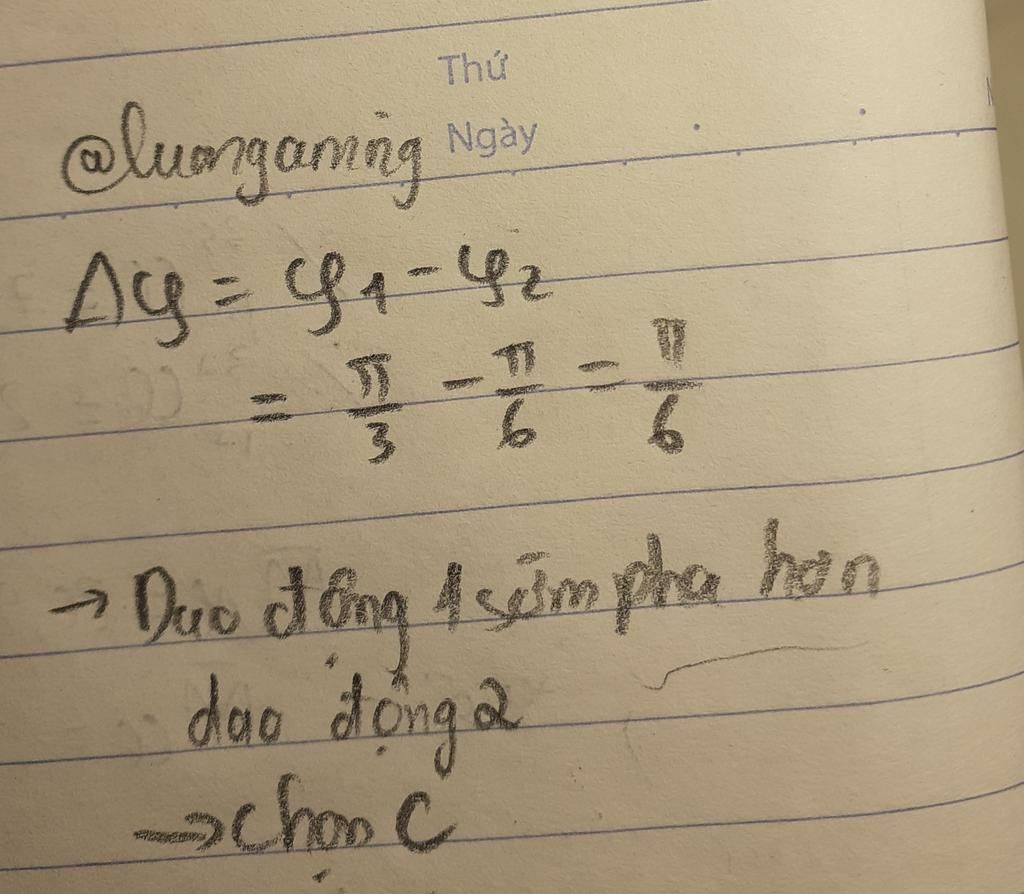 Thứ
Ngày
@luongaming
Δφ = φ1 - φ2
= π/3 - π/6 = π/6
→ Dao động 1 sớm pha hơn
dao động 2
→ chọn C